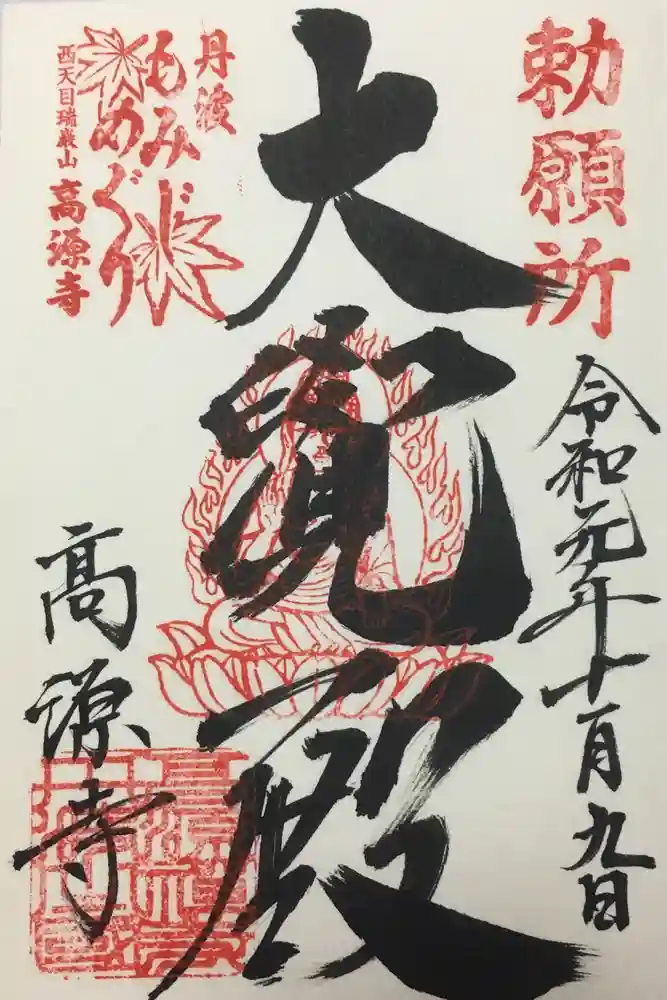 勅願所
令和元年十月九日
大覚殿
丹波
もみじ
めぐり
西天目瑞巌山 高源寺
高源寺